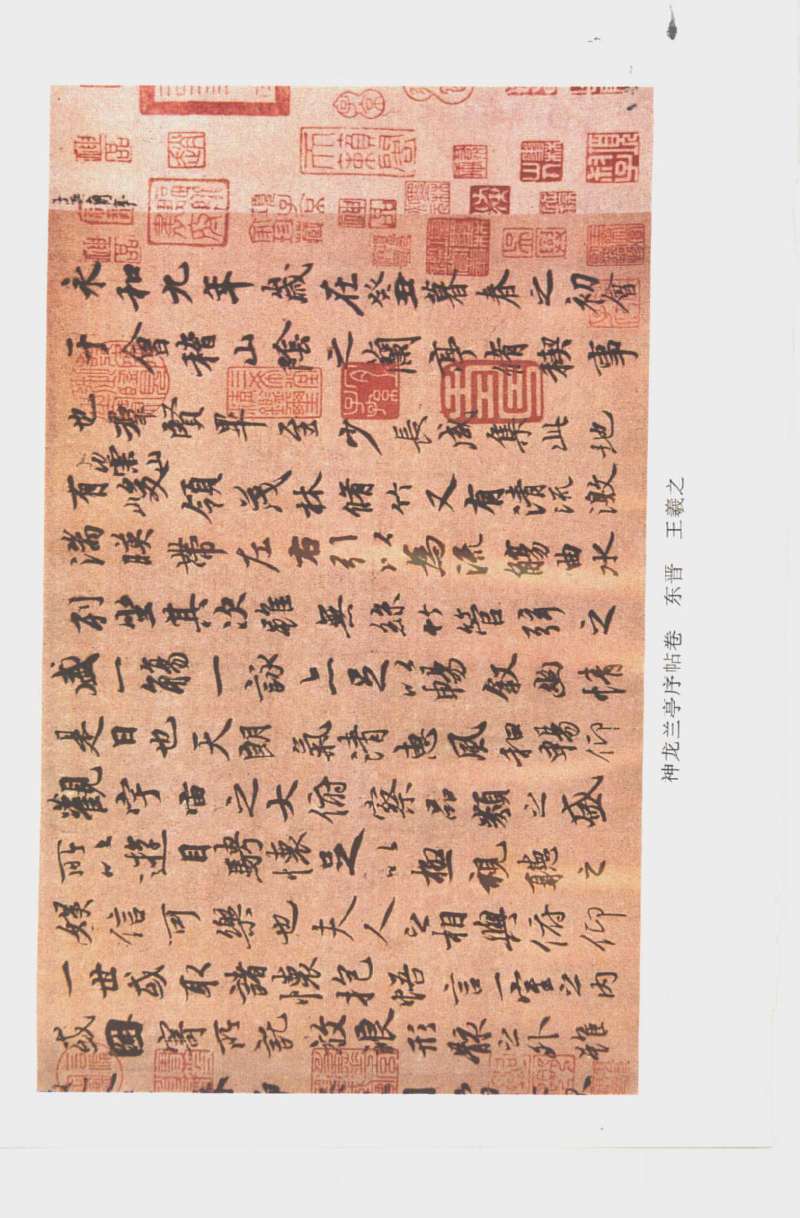 永和九年歲在癸丑暮春之初會
于會稽山陰之蘭亭脩禊事
也羣賢畢至少長咸集此地
有崇山峻領茂林脩竹又有清流激
湍暎帶左右引以為流觴曲水
列坐其次雖無絲竹管弦之
盛一觴一詠亦足以暢叙幽情
是日也天朗氣清惠風和暢仰
觀宇宙之大俯察品類之盛
所以遊目騁懷足以極視聽之
娛信可樂也夫人之相與俯仰
一世或取諸懷抱悟言一室之內
或因寄所託放浪形骸之外雖
神龙兰亭序帖卷 东晋 王羲之